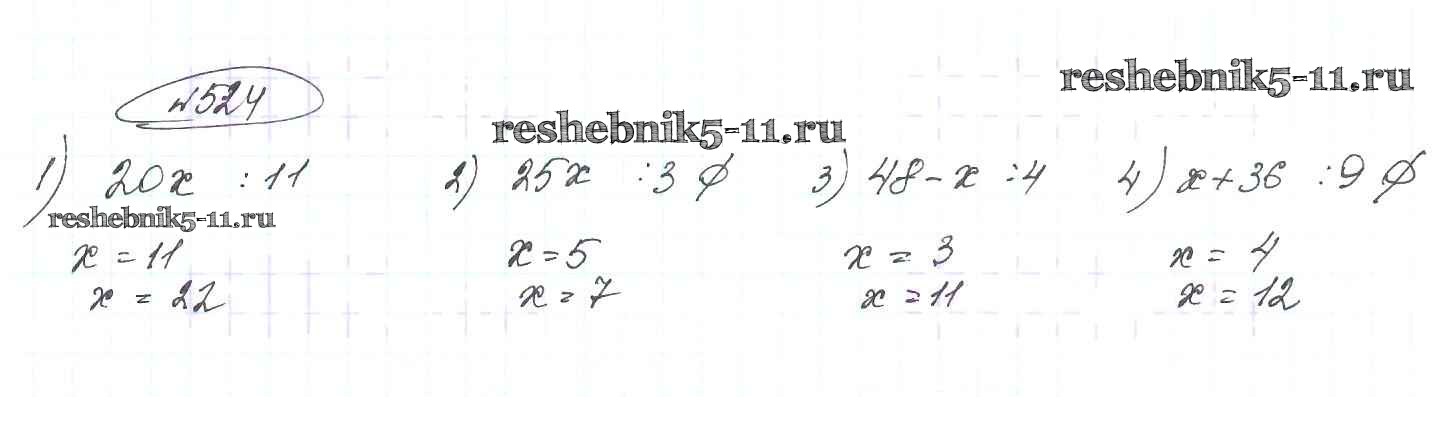 reshebnik5-11.ru
№524
reshebnik5-11.ru
1) 20x : 11 2) 25x : 3 ∅ 3) 48-x : 4 4) x+36 : 9 ∅
reshebnik5-11.ru
x = 11 x = 5 x = 3 x = 4
x = 22 x = 7 x = 11 x = 12